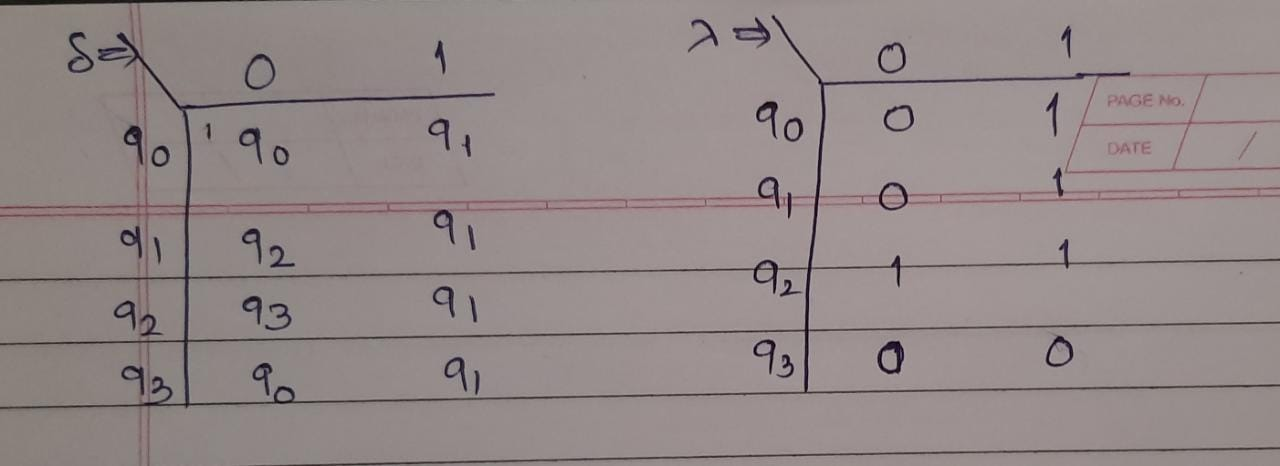 δ⇒ 0 1
q0 q0 q1
q1 q2 q1
q2 q3 q1
q3 q0 q1
λ⇒ 0 1
q0 0 1
q1 0 1
q2 1 1
q3 0 0
PAGE No.
DATE /